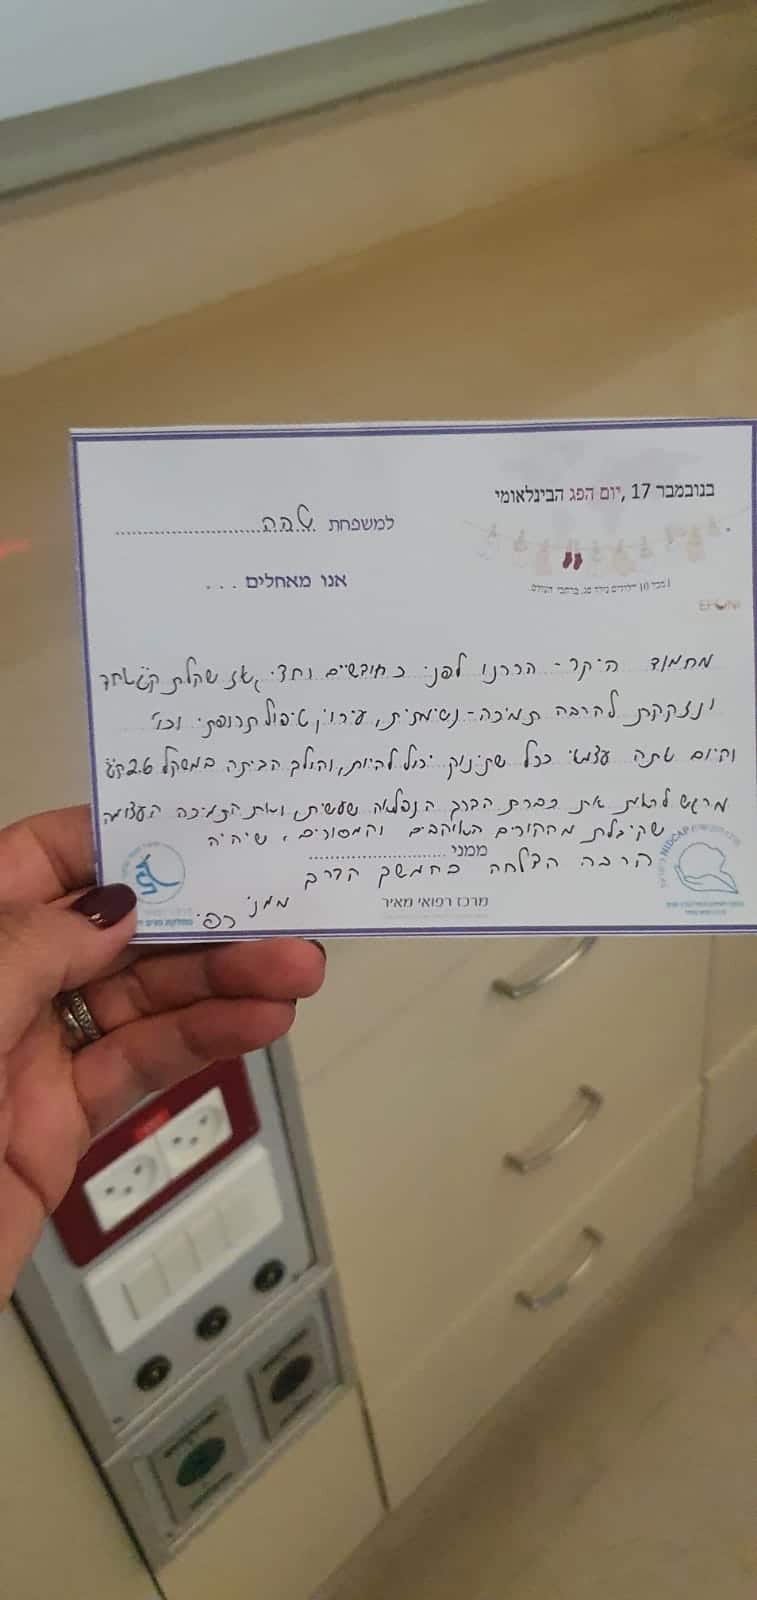 בנובמבר 17, יום הפג הבינלאומי
למשפחת טהה
אנו מאחלים ...
1 מכל 10 יילודים נולד פג, ברחבי העולם.
EFCNI
מחמוד היקר - הכרנו לפני כחודשיים וחצי, אז שקלת
ונזקקת להרבה תמיכה - נשימתית, עירוי, טיפול תרופתי וכו'
והיום אתה עצמאי ככל שתינוק יכול להיות, והולך הביתה במשקל 2.6 ק"ג
מרגש לראות את כברת הדרך הנפלאה שעשית, ואת התמיכה העצומה
שקיבלת מההורים האוהבים והמסורים. שיהיה
ממני
הרבה הצלחה בהמשך הדרך
ממני
מרכז רפואי מאיר
NIDCAP